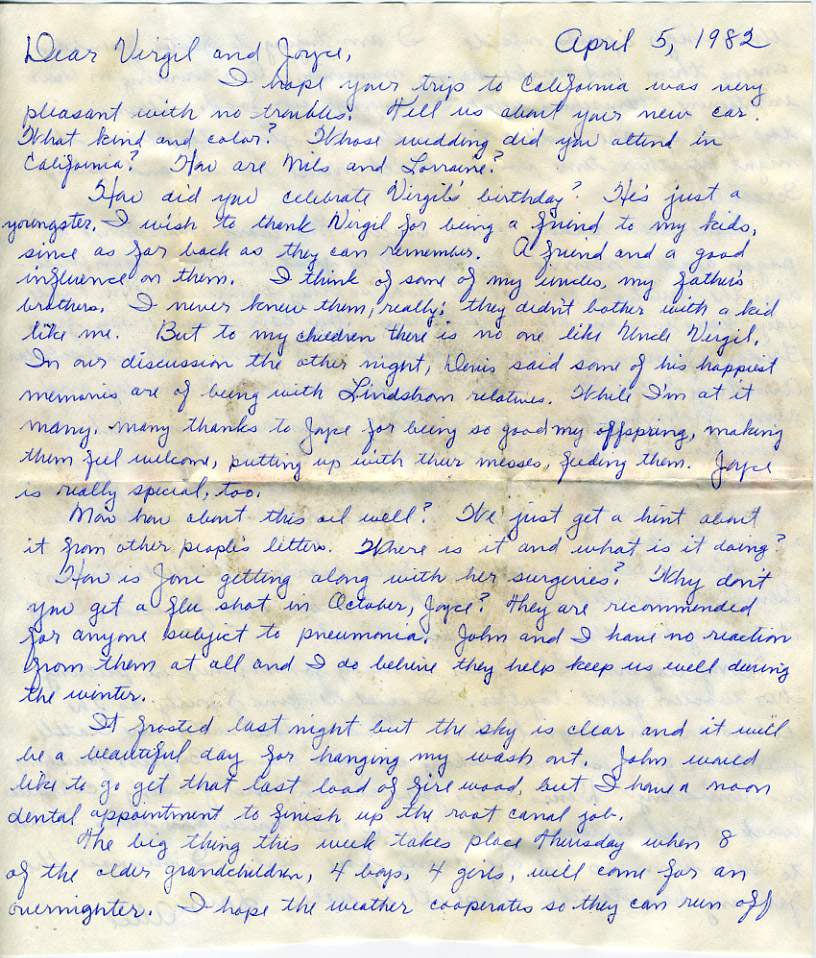 April 5, 1982
Dear Virgil and Joyce,
I hope your trip to California was very
pleasant with no troubles. Tell us about your new car.
What kind and color? Whose wedding did you attend in
California? How are Mils and Lorraine?
How did you celebrate Virgil's birthday? He's just a
youngster. I wish to thank Virgil for being a friend to my kids,
since as far back as they can remember. A friend and a good
influence on them. I think of some of my uncles, my father's
brothers. I never knew them, really; they didn't bother with a kid
like me. But to my children there is no one like Uncle Virgil.
In our discussion the other night, Denis said some of his happiest
memories are of being with Lindstrom relatives. While I'm at it
many, many thanks to Joyce for being so good my offspring, making
them feel welcome, putting up with their messes, feeding them. Joyce
is really special, too.
Now how about this oil well? I've just get a hint about
it from other people's letters. Where is it and what is it doing?
How is Joni getting along with her surgeries? Why don't
you get a flu shot in October, Joyce? They are recommended
for anyone subject to pneumonia. John and I have no reaction
from them at all and I do believe they help keep us well during
the winter.
It frosted last night but the sky is clear and it will
be a beautiful day for hanging my wash out. John would
like to go get that last load of fire wood, but I have a noon
dental appointment to finish up the root canal job.
The big thing this week takes place Thursday when 8
of the older grandchildren, 4 boys, 4 girls, will come for an
overnighter. I hope the weather cooperates so they can run off